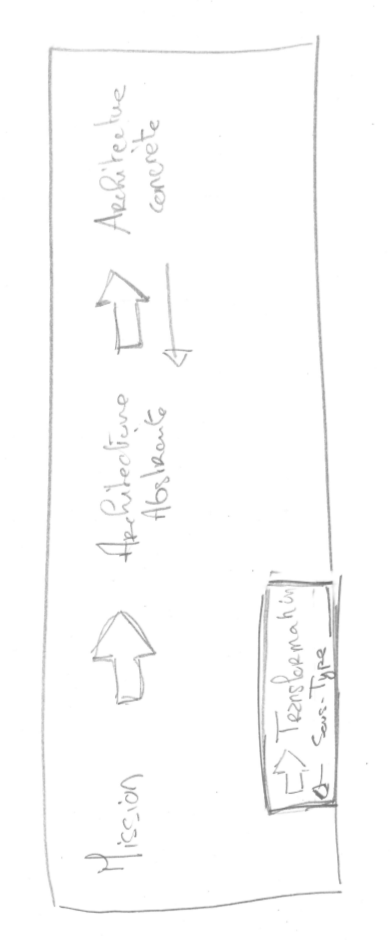 Mission
Architecture
Abstraite
Architecture
concrète
Transformation
Sous-Type